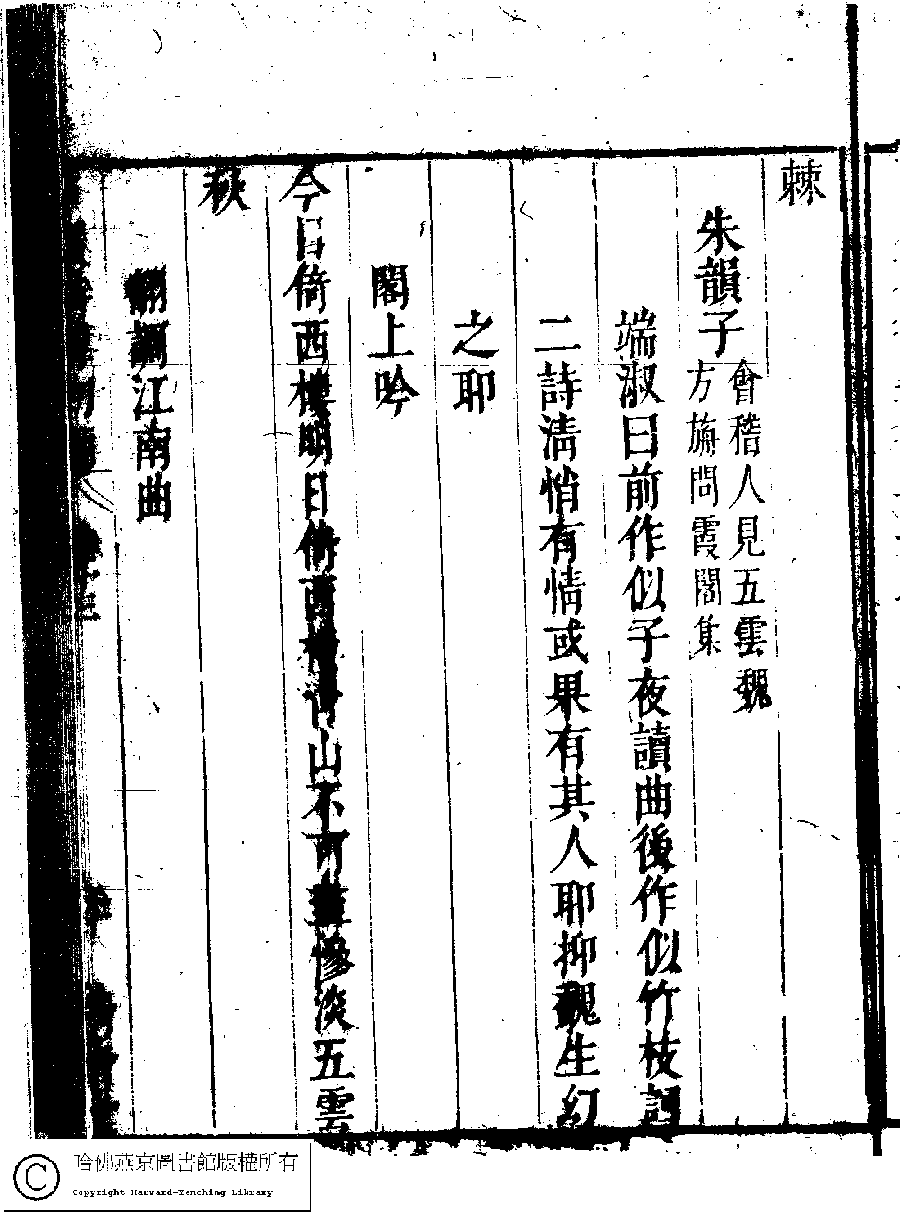 棘
朱韻子
會稽人見五雲魏
方旃問霞閣集
端淑曰前作似子夜讀曲後作似竹枝詞
二詩清悄有情或果有其人耶抑魏生幻
之耶
閣上吟
今日倚西樓明日倚西樓青山不可畫慘淡五雲
秋
翻調江南曲
哈佛燕京圖書館版權所有
Copyright Harvard-Yenching Library